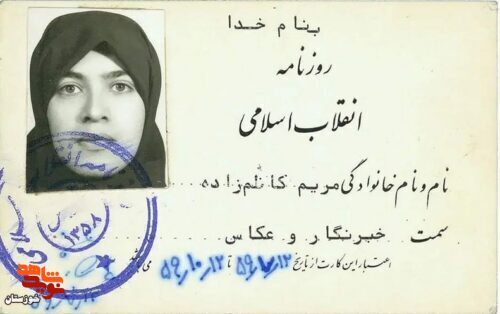 بنام خدا
روزنامه
انقلاب اسلامی
نام و نام خانوادگی مریم کاظم‌زاده
سمت خبرنگار و عکاس
اعتبار این کارت از تاریخ ۵۹/۱۰/۱۲ تا ۵۹/۱۰/۱۲ می‌باشد
۱۳۵۸
نوید شاهد
خوزستان